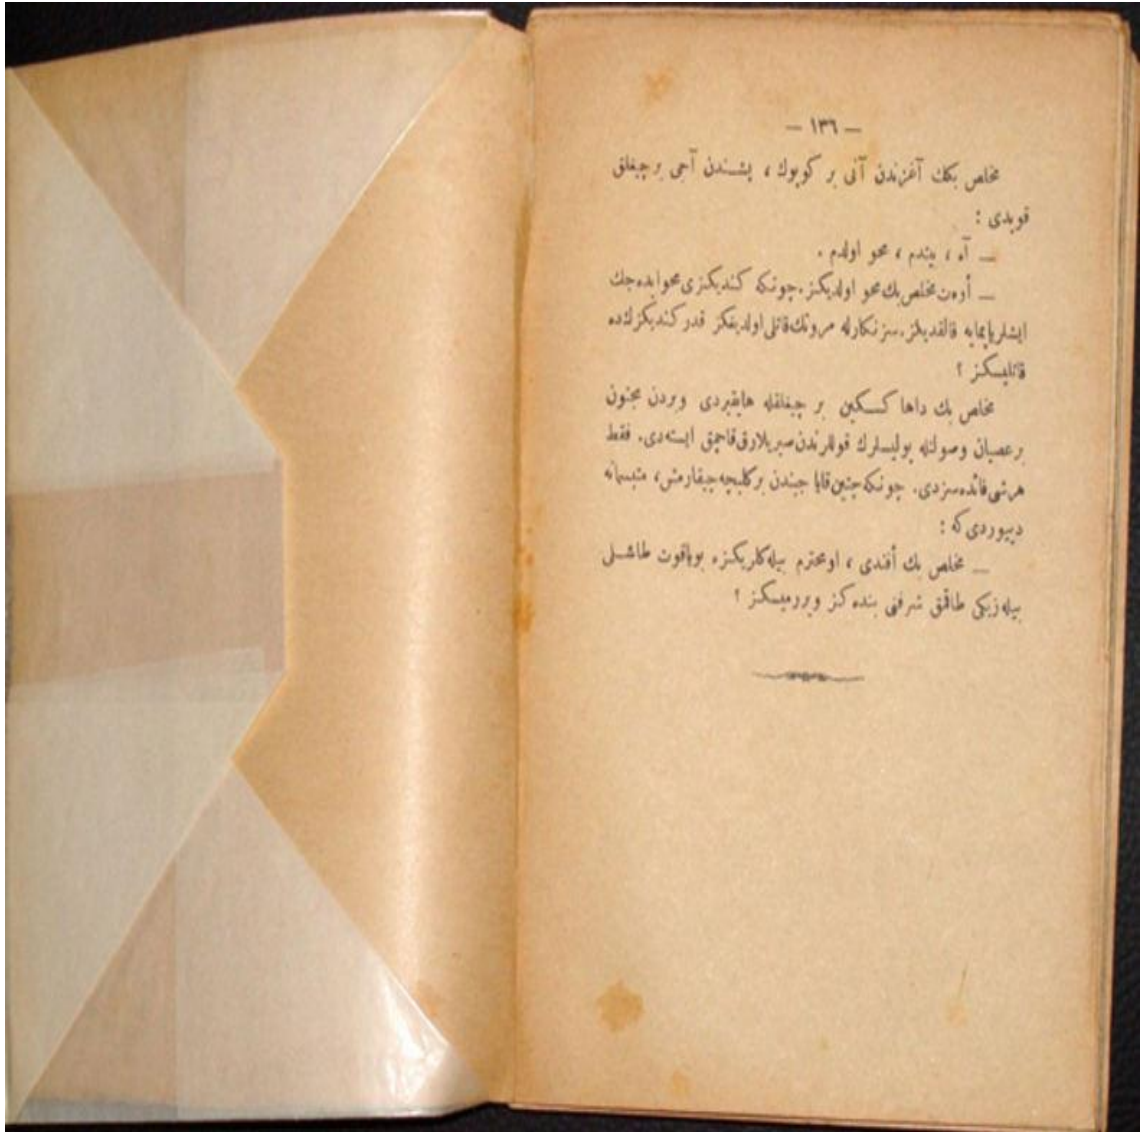 — ١٣٦ —
مخلص بكك آغزندن آنی بر كوپوك ، پشندن آجی بر چیغلق
قوپدی :
— آه ، بیتدم ، محو اولدم .
— أوەت مخلص بك محو اولدیكز. چونكه كندیكزی محو ایده جك
ایشلر یاپمایه قالقدیكز. سز نكارله مروتك قاتلی اولدیغكز قدر كندیكزك ده
قاتلیسكز ؟
مخلص بك داها كسكین بر چیغلقله هایقیردی وبردن مجنون
بر عصیان وصولتله پولیسلرك قوللرندن صیریلارق قاچمق ایسته دی. فقط
هر شی فائده سزدی. چونكه چتین قایا جیبندن بر كلپچه چیقارمش، متبسمانه
دییوردی كه :
— مخلص بك أفندی ، او محترم بیله كلریكزه بو یاقوت طاشلی
بیله زیكی طاقمق شرفنی بنده كز ویررمیسكز ؟